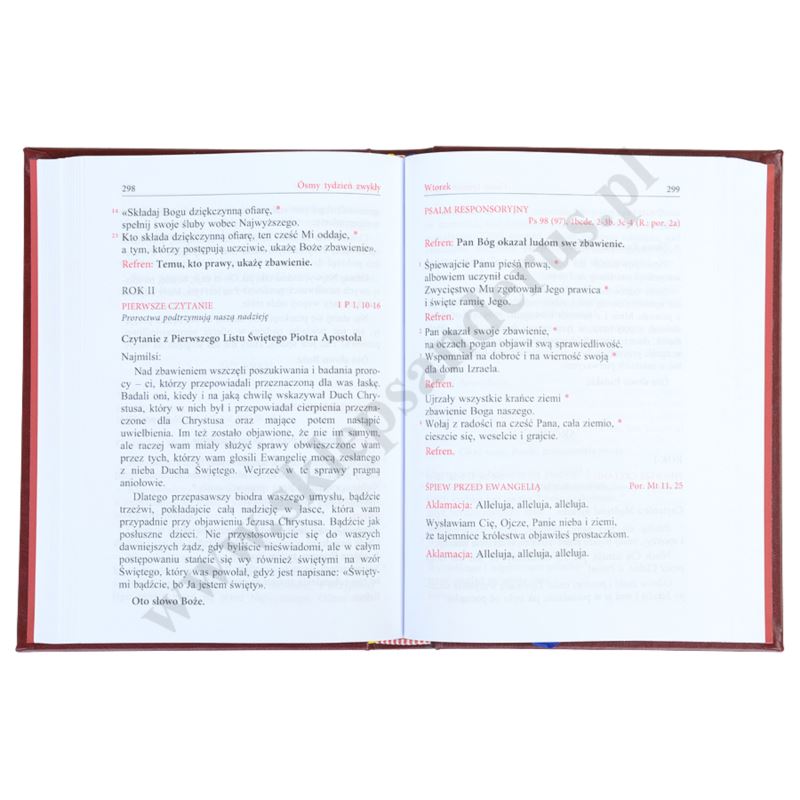 298 Ósmy tydzień zwykły
14 «Składaj Bogu dziękczynną ofiarę, *
spełnij swoje śluby wobec Najwyższego.
23 Kto składa dziękczynną ofiarę, ten cześć Mi oddaje, *
a tym, którzy postępują uczciwie, ukażę Boże zbawienie».
Refren: Temu, kto prawy, ukażę zbawienie.
ROK II
PIERWSZE CZYTANIE 1 P 1, 10-16
Proroctwa podtrzymują naszą nadzieję
Czytanie z Pierwszego Listu Świętego Piotra Apostoła
Najmilsi:
Nad zbawieniem wszczęli poszukiwania i badania proro-
cy – ci, którzy przepowiadali przeznaczoną dla was łaskę.
Badali oni, kiedy i na jaką chwilę wskazywał Duch Chry-
stusa, który w nich był i przepowiadał cierpienia przezna-
czone dla Chrystusa oraz mające potem nastąpić
uwielbienia. Im też zostało objawione, że nie im samym,
ale raczej wam miały służyć sprawy obwieszczone wam
przez tych, którzy wam głosili Ewangelię mocą zesłanego
z nieba Ducha Świętego. Wejrzeć w te sprawy pragną
aniołowie.
Dlatego przepasawszy biodra waszego umysłu, bądźcie
trzeźwi, pokładajcie całą nadzieję w łasce, która wam
przypadnie przy objawieniu Jezusa Chrystusa. Bądźcie jak
posłuszne dzieci. Nie przystosowujcie się do waszych
dawniejszych żądz, gdy byliście nieświadomi, ale w całym
postępowaniu stańcie się wy również świętymi na wzór
Świętego, który was powołał, gdyż jest napisane: «Święty-
mi bądźcie, bo Ja jestem święty».
Oto słowo Boże.
Wtorek 299
PSALM RESPONSORYJNY
Ps 98 (97), 1bcde. 2-3b. 3c-4 (R.: por. 2a)
Refren: Pan Bóg okazał ludom swe zbawienie.
1 Śpiewajcie Panu pieśń nową, *
albowiem uczynił cuda.
Zwycięstwo Mu zgotowała Jego prawica *
i święte ramię Jego.
Refren.
2 Pan okazał swoje zbawienie, *
na oczach pogan objawił swą sprawiedliwość.
3 Wspomniał na dobroć i na wierność swoją *
dla domu Izraela.
Refren.
Ujrzały wszystkie krańce ziemi *
zbawienie Boga naszego.
4 Wołaj z radości na cześć Pana, cała ziemio, *
cieszcie się, weselcie i grajcie.
Refren.
ŚPIEW PRZED EWANGELIĄ Por. Mt 11, 25
Aklamacja: Alleluja, alleluja, alleluja.
Wysławiam Cię, Ojcze, Panie nieba i ziemi,
że tajemnice królestwa objawiłeś prostaczkom.
Aklamacja: Alleluja, alleluja, alleluja.
www.sklepsanderus.pl